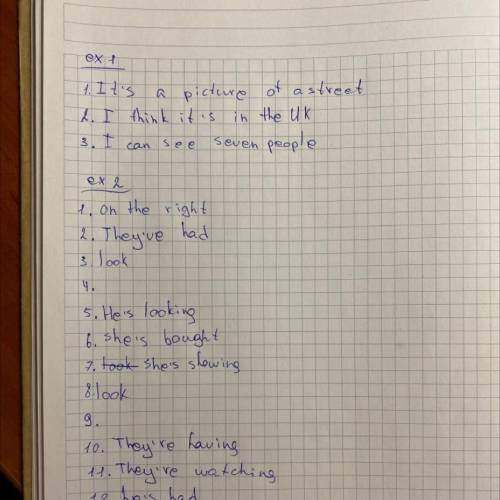 ex 1
1. It's a picture of a street
2. I think it's in the UK
3. I can see seven people
ex 2
1. on the right
2. They've had
3. look
4.
5. He's looking
6. she's bought
7. took she's slowing
8. look
9.
10. They're having
11. They're watching
12. he's had